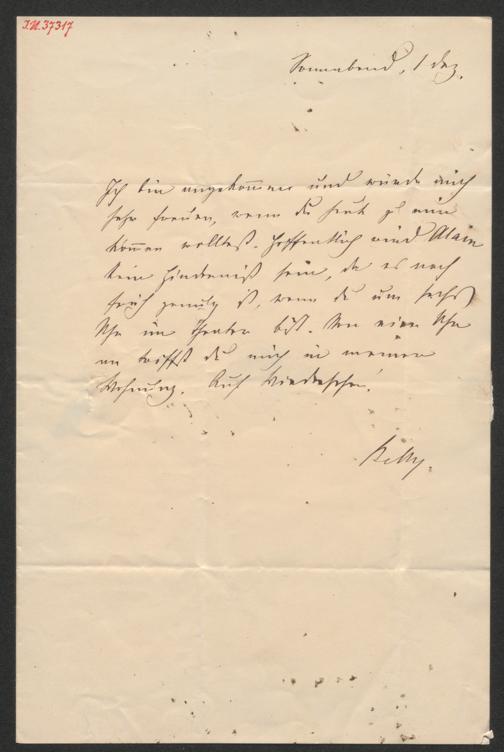 I.N. 37317
Sonnabend, 1 Dez.
Ich bin angekommen und würde mich
sehr freuen, wenn du heut zu mir
kommen wolltest. Hoffentlich wird Alain
kein Hinderniß sein, da es noch
früh genug ist, wenn du um sechs
Uhr im Theater bist. Von einer Uhr
an triffst du mich in meiner
Wohnung. Auf Wiedersehen!